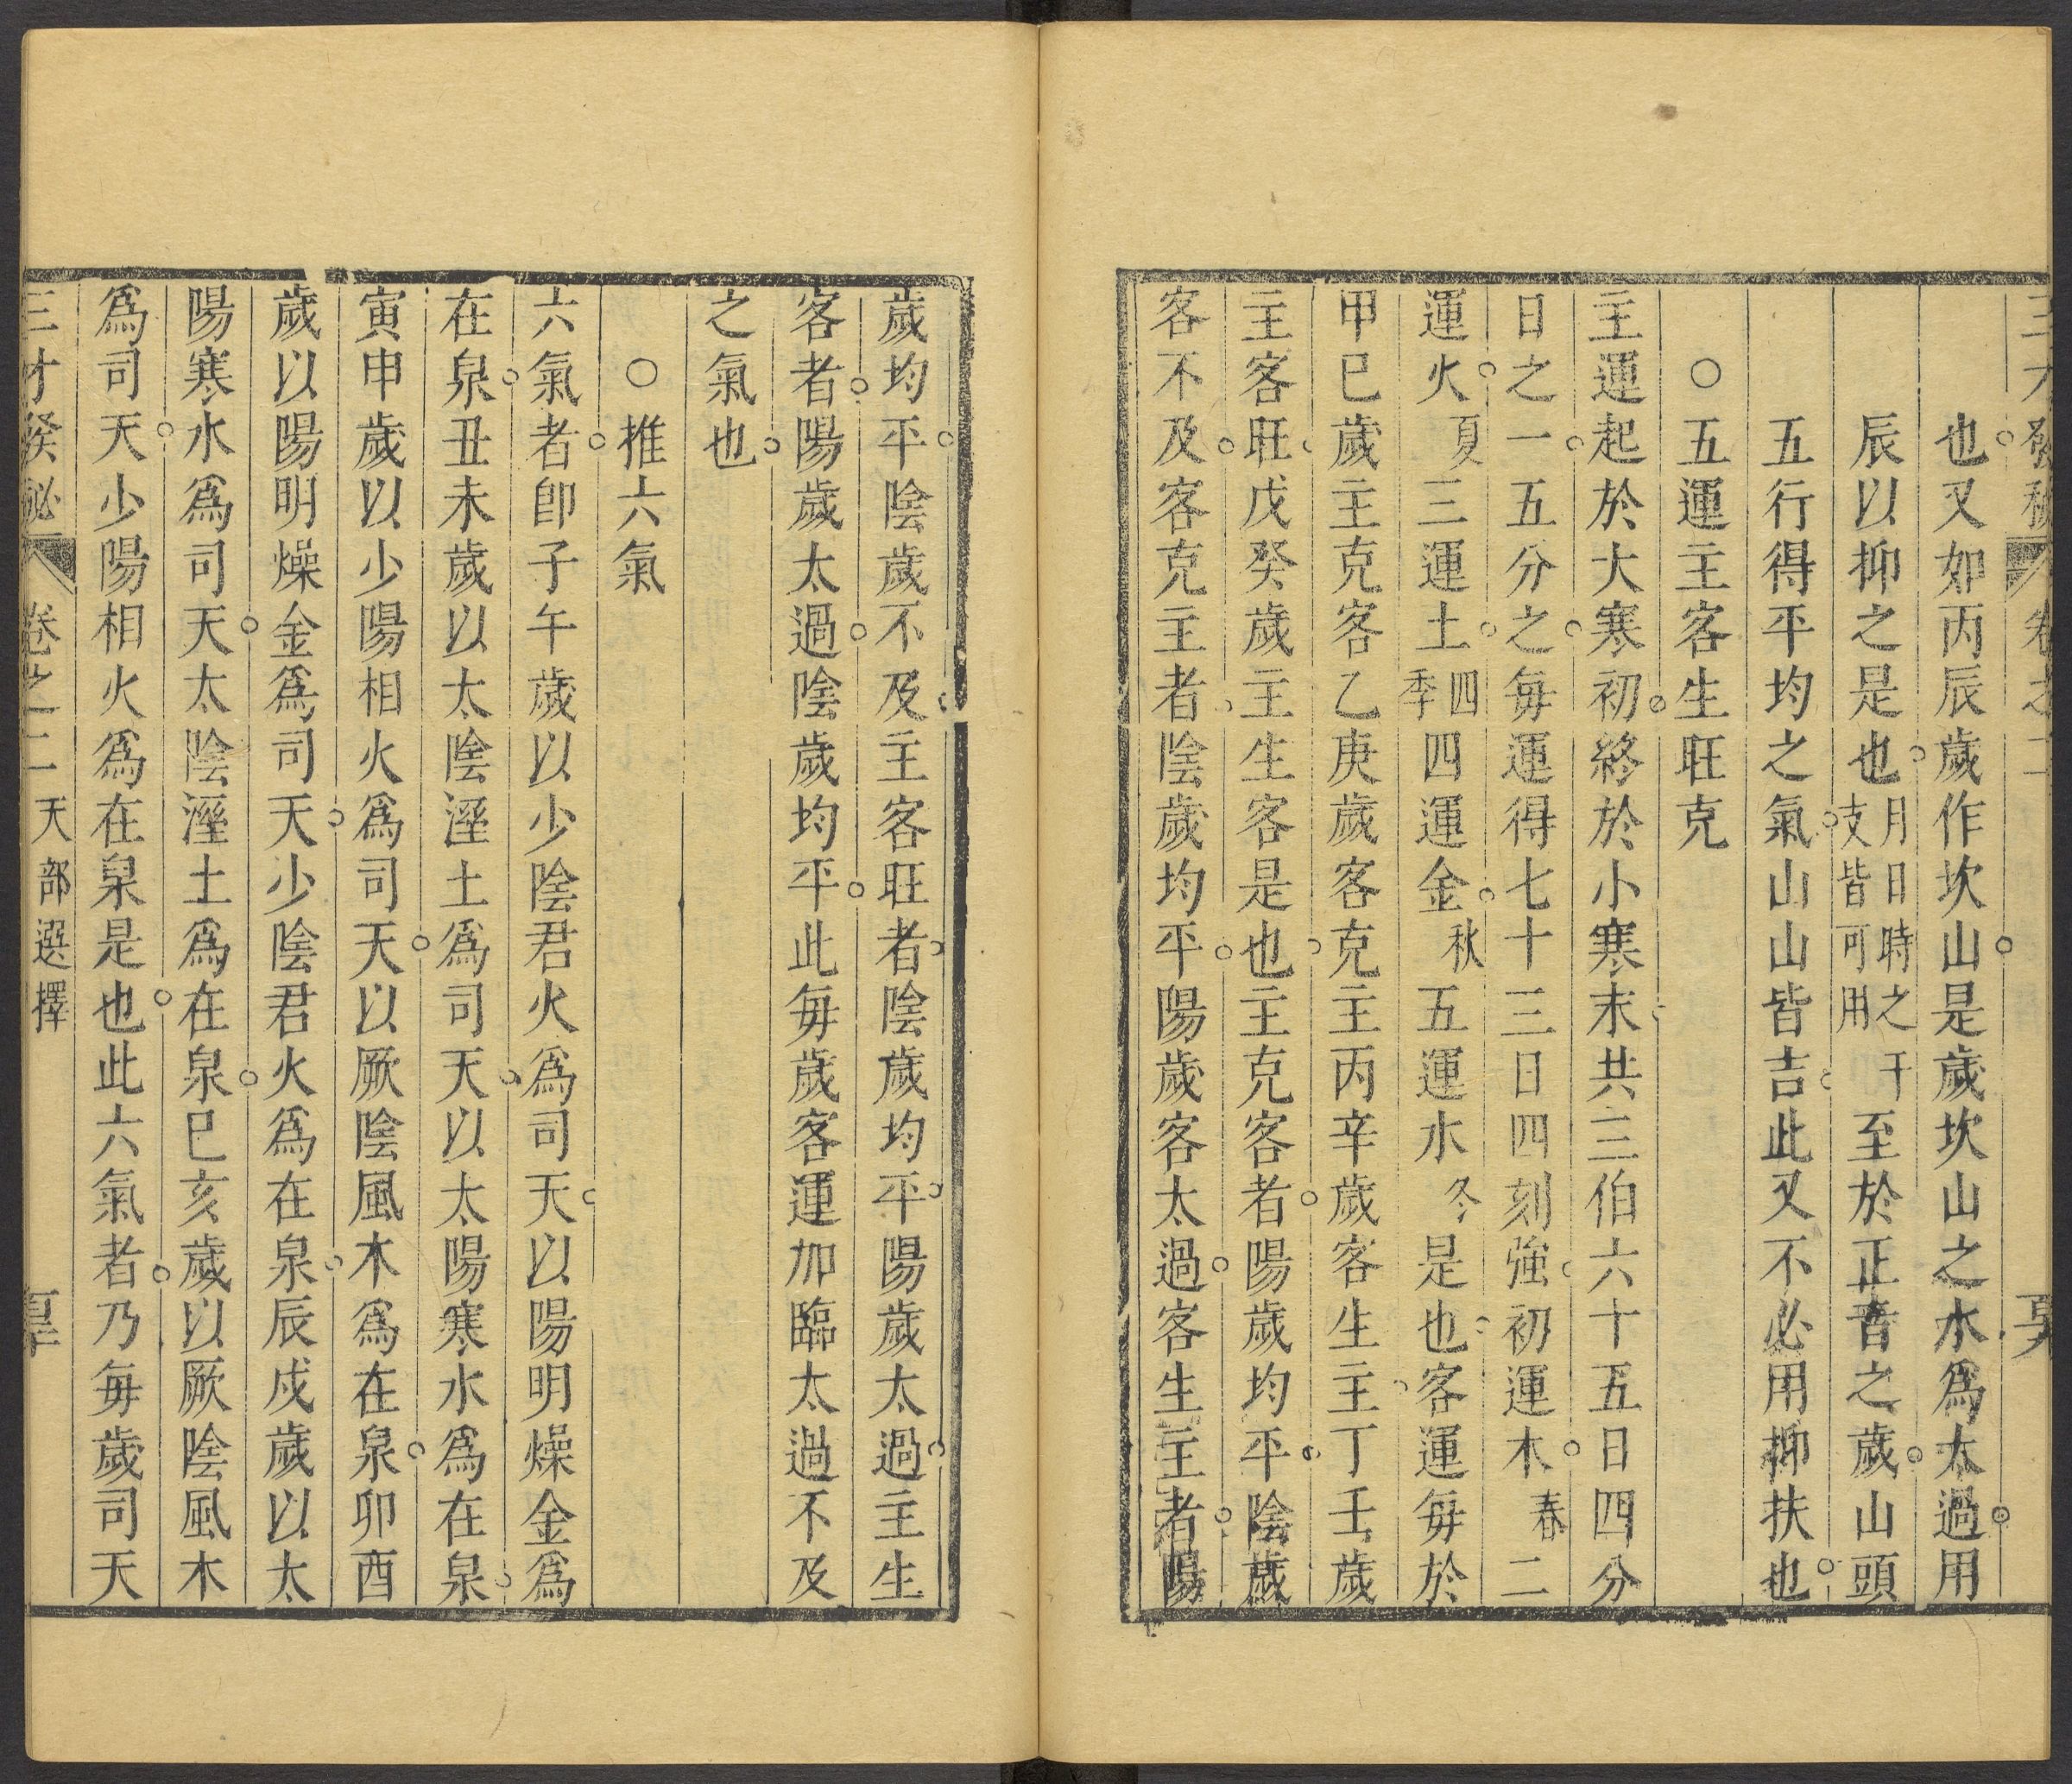 也又如丙辰歲作坎山是歲坎山之水爲太過用
辰以抑之是也月日時之干支皆可用至於正音之歲山頭
五行得平均之氣山山皆吉此又不必用抑扶也
○五運主客生旺克
主運起於大寒初終於小寒末共三伯六十五日四分
日之一五分之每運得七十三日四刻強初運木春二
運火夏三運土四季四運金秋五運水冬是也客運每於
甲巳歲主克客乙庚歲客克主丙辛歲客生主丁壬歲
主客旺戊癸歲主生客是也主克客者陽歲均平陰歲
客不及客克主者陰歲均平陽歲客太過客生主者陽
歲均平陰歲不及主客旺者陰歲均平陽歲太過主生
客者陽歲太過陰歲均平此每歲客運加臨太過不及
之氣也
○推六氣
六氣者卽子午歲以少陰君火爲司天以陽明燥金爲
在泉丑未歲以太陰溼土爲司天以太陽寒水爲在泉
寅申歲以少陽相火爲司天以厥陰風木爲在泉卯酉
歲以陽明燥金爲司天少陰君火爲在泉辰戌歲以太
陽寒水爲司天太陰溼土爲在泉巳亥歲以厥陰風木
爲司天少陽相火爲在泉是也此六氣者乃每歲司天
三才發秘 卷之二 天部選擇